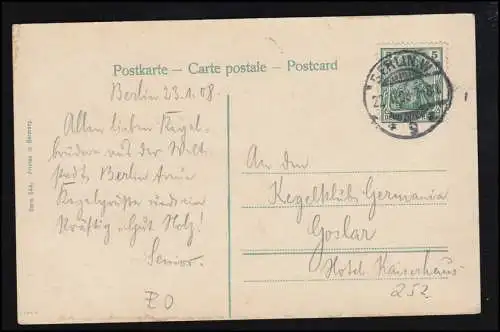 Postkarte – Carte postale – Postcard
Berlin 23.1.08.
Allen lieben Kegel-
brüdern aus der Welt-
stadt Berlin
Kegelgrüße und ein
kräftig „Gut Holz!
Senior.
EO
An den
Kegelklub Germania
Goslar
Hotel Kaiserhaus
252
BERLIN.W.
5